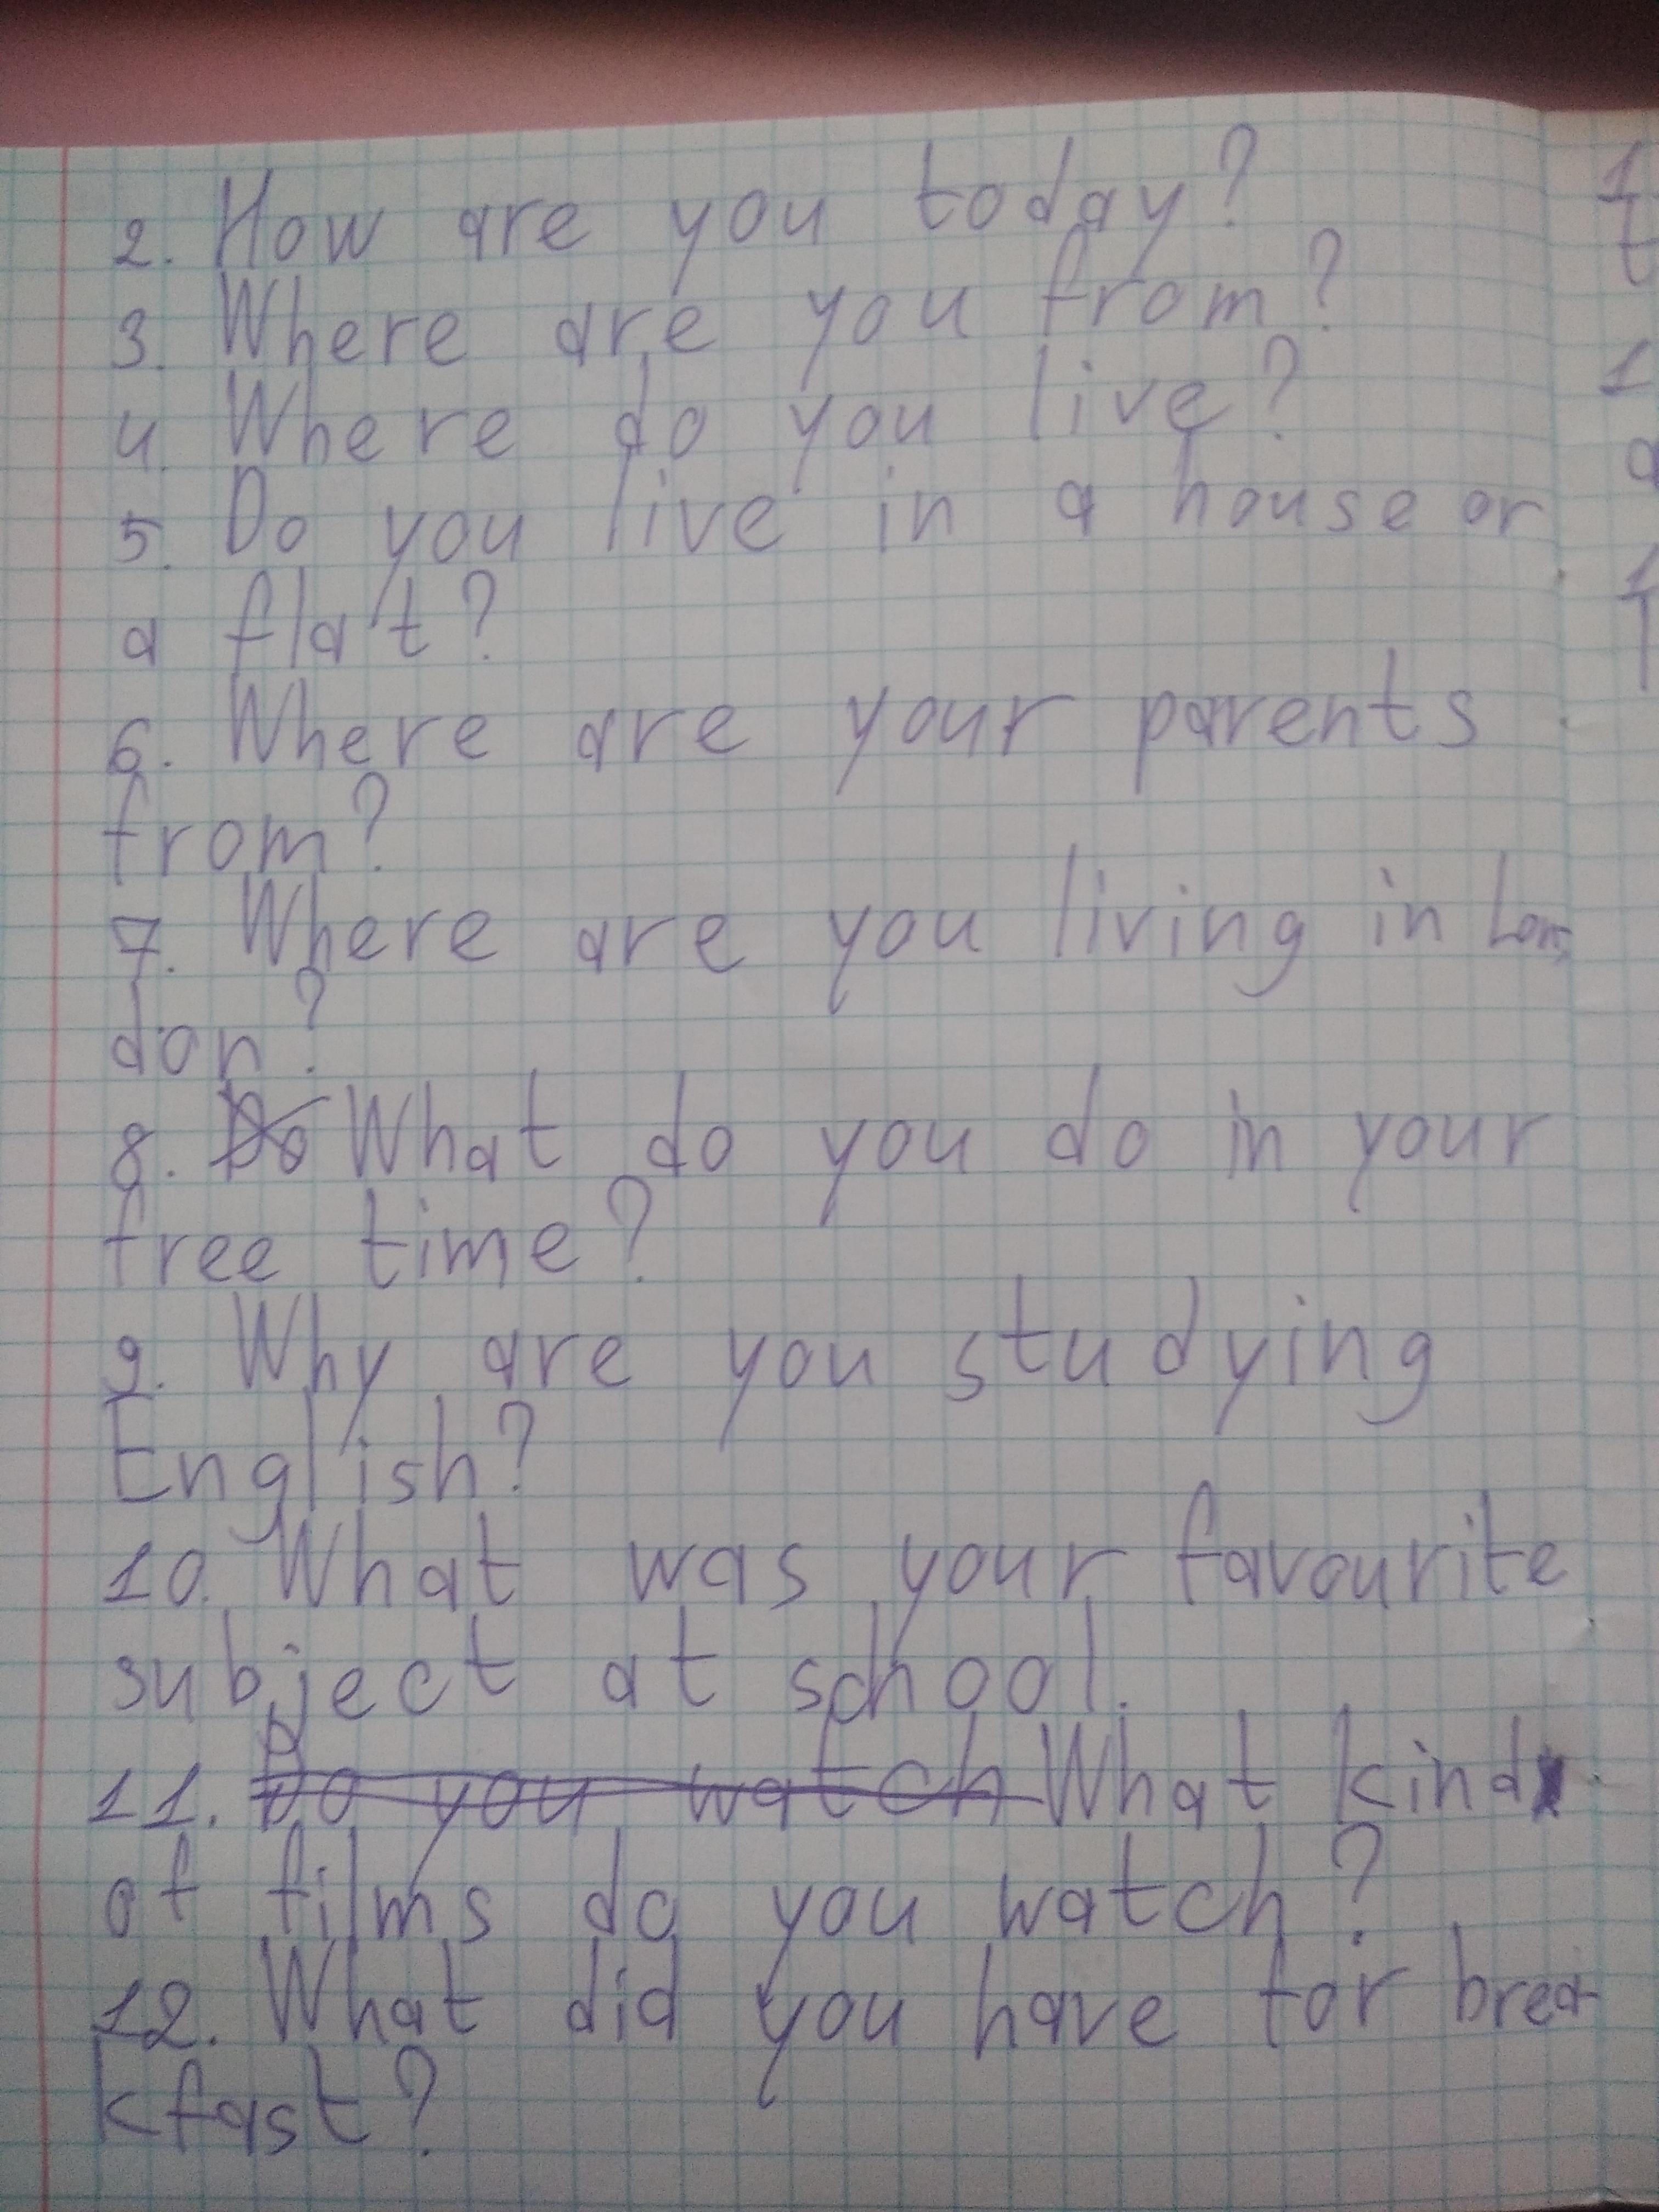 2. How are you today?
3. Where are you from?
4. Where do you live?
5. Do you live in a house or
a flat?
6. Where are your parents
from?
7. Where are you living in Lon-
don?
8. Do What do you do in your
free time?
9. Why are you studying
English?
10. What was your favourite
subject at school.
11. Do you watch What kind
of films do you watch?
12. What did you have for brea-
kfast?